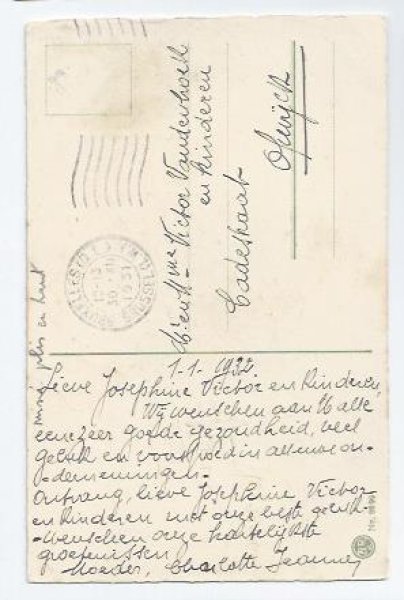 Mr en Mme Victor Vanderhoek
en kinderen
Cadestraat
Olwijck
BRUXELLES
BRUSSEL
1-1-1932
Lieve Josephine Victor en kinderen,
Wij wenschen aan U alle
eene zeer goede gezondheid, veel
geluk en voorspoed in alle uwe on-
dernemingen.
Ontvang, lieve Josephine Victor
en kinderen met onze beste geluk-
wenschen onze hartelijkste
groetenissen.
Moeder, Charlotte Jeanne,